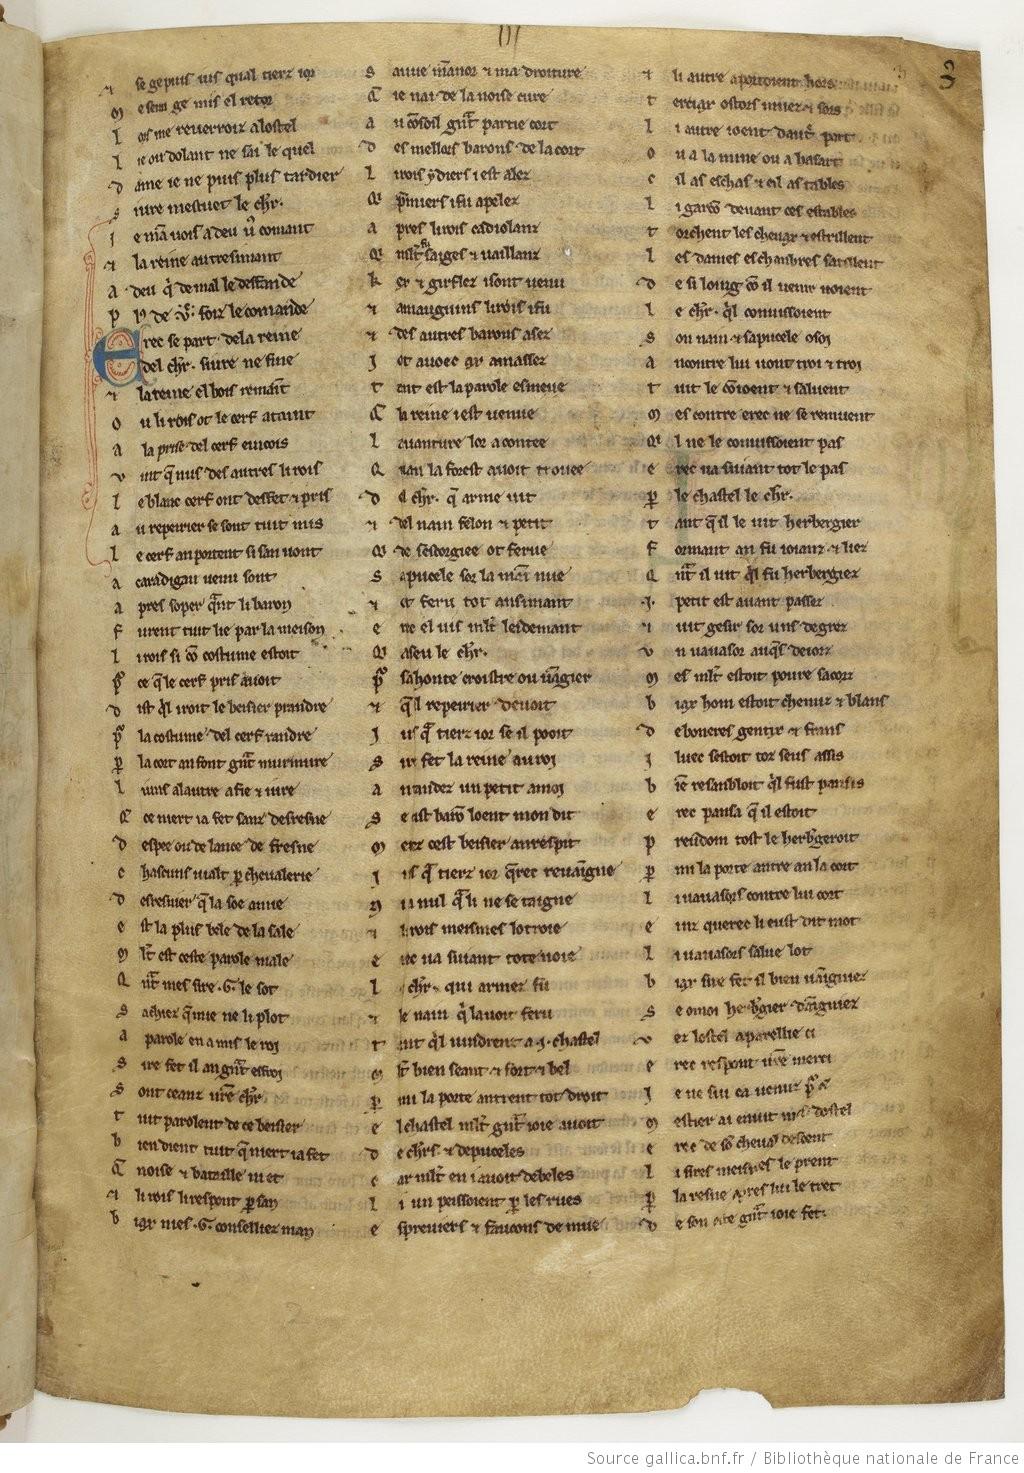 III
3
⁊ se ge puis uis qual tierz ior
M e sem ge mis el retor
L ors me reuerroiz a lostel
L ie ou dolant ne sai le quel
D ame ie ne puis plus tardier
S iure mestuet le chr̃.
I e mã uois a deu uˢ comant
⁊ la reine autresimant
A deu q̃ de mal le deffande
P de foiz le comande
E rec se part de la reine
del chr̃. siure ne fine
⁊ la reine el bois remaĩt
O u li rois ot le cerf ataint
A la prise del cerf eincois
V int q̃ nus des autres li rois
L e blanc cerf ont deffet ⁊ pris
A u repeirier se sont tuit mis
L e cerf an portent si san uont
A caradigan uenu sont
A pres soper q̃nt li baron
F urent tuit lie par la meison
L i rois si cõ costume estoit
P ce q̃ le cerf pris auoit
D ist ql̃ iroit le beisier prandre
P la costume del cerf randre
P la cort an font gnt̃ murmure
L uns a lautre afie ⁊ iure
C ce niert ia fet sanz desresne
D espee ou de lance de fresne
C hascuns uialt p cheualerie
D esresnier q̃ la soe amie
E st la plus bele de la sale
M lt̃ est ceste parole male
Q nt̃ mes sire .G. le sot
S achiez q̃ mie ne li plot
A parole en a mis le roi
S ire fet il an gnt̃ esfroi
S ont ceanz urẽ chr̃
T uit parolent de ce beisier
B ien dient tuit q̃ niert ia fet
C noise ⁊ bataille ni et
⁊ li rois li respont p san
B iax nies .G. conseilliez man
S auue manor ⁊ ma droiture
C ie nai de la noise cure
A u cõsoil gnt̃ partie cort
D es mellors barons de la cort
L i rois ydiers i est alez
Q pmiers i fu apelez
A pres li rois cadiolanz
Q mlt̃ fu saiges ⁊ uaillanz
K ex ⁊ girflez i sont uenu
⁊ amauguins li rois i fu
⁊ des autres barons asez
I ot auoec ax amassez
T ant est la parole esmeue
C la reine i est uenue
L auanture lor a contee
Q uan la forest auoit trouee
D el chr̃. q̃ arme uit
⁊ del nain felon ⁊ petit
Q de sescorgiee ot ferue
S a pucele sor la main nue
⁊ ot feru tot ansimant
E rec el uis mlt̃ leidemant
Q aseu le chr̃.
P sa honte croistre ou uãgier
⁊ q̃l repeirier deuoit
I us q̃ tierz ior se il pooit
S ire fet la reine au roi
A ntandez un petit a moi
S e cist barõ loent mon dit
M etez cest beisier an respit
I us q̃ tierz ior q̃rec reuaigne
N i a nul q̃ li ne se taigne
⁊ li rois meismes lotroie
E rec ua siuant tote uoie
L chr̃. qui armez fu
⁊ le nain q̃ lauoit feru
T ant ql̃ uindrent a .i. chastel
M lt̃ bien seant ⁊ fort ⁊ bel
P mi la porte antrent tot droit
E l chastel mlt̃ gnt̃ ioie auoit
D e chr̃s ⁊ de puceles
C ar mlt̃ en i auoit de beles
L i un peissoient p les rues
E spreuiers ⁊ faucons de mue
⁊ li autre aportoient hors
T erciax ostors muez ⁊ sors
L i autre ioent dautr̃ part
O u a la mine ou a hasart
C il as eschas ⁊ cil as tables
L i garcõ deuant ces estables
T orchent les cheuax ⁊ estrillent
L es dames es chanbres satillent
D e si loing cõ il ueuir uoient
L e chr̃. ql̃ conuissoient
S on nain ⁊ sa pucele o soi
A ncontre lui uont troi ⁊ troi
T uit le cõioent ⁊ saluent
M es contre erec ne se remuent
Q l ne le conuissoient pas
E rec ua siuant tot le pas
P le chastel le chr̃.
T ant q̃ il le uit herbergier
F ormant an fu ioianz ⁊ liez
Q nt̃ il uit ql̃ fu herbergiez
.I. petit est auant passez
⁊ uit gesir sor uns degrez
V n uauasor auq̃s de iorz
M es mlt̃ estoit poure sa corz
B iax hom estoit chenuz ⁊ blans
D eboneres gentix ⁊ frans
I luec sestoit toz seus assis
B iẽ resanbloit ql̃ fust pansis
E rec pansa q̃ il estoit
P reudom tost le herb̃geroit
P mi la porte antre an la cort
L i uauasors contre lui cort
E inz querec li eust dit mot
L i uauasors salue lot
B iax sire fet il bien uãgniez
S e o moi herb̃gier dãgniez
V ez lostel aparellie ci
E rec respont urẽ merci
I e ne sui ca uenuz p el
M estier ai enuit dostel
E rec de sõ cheual descent
L i sires meismes le prent
P la resne apres lui le tret
D e son oste gnt̃ ioie fet.
Source gallica.bnf.fr / Bibliothèque nationale de France